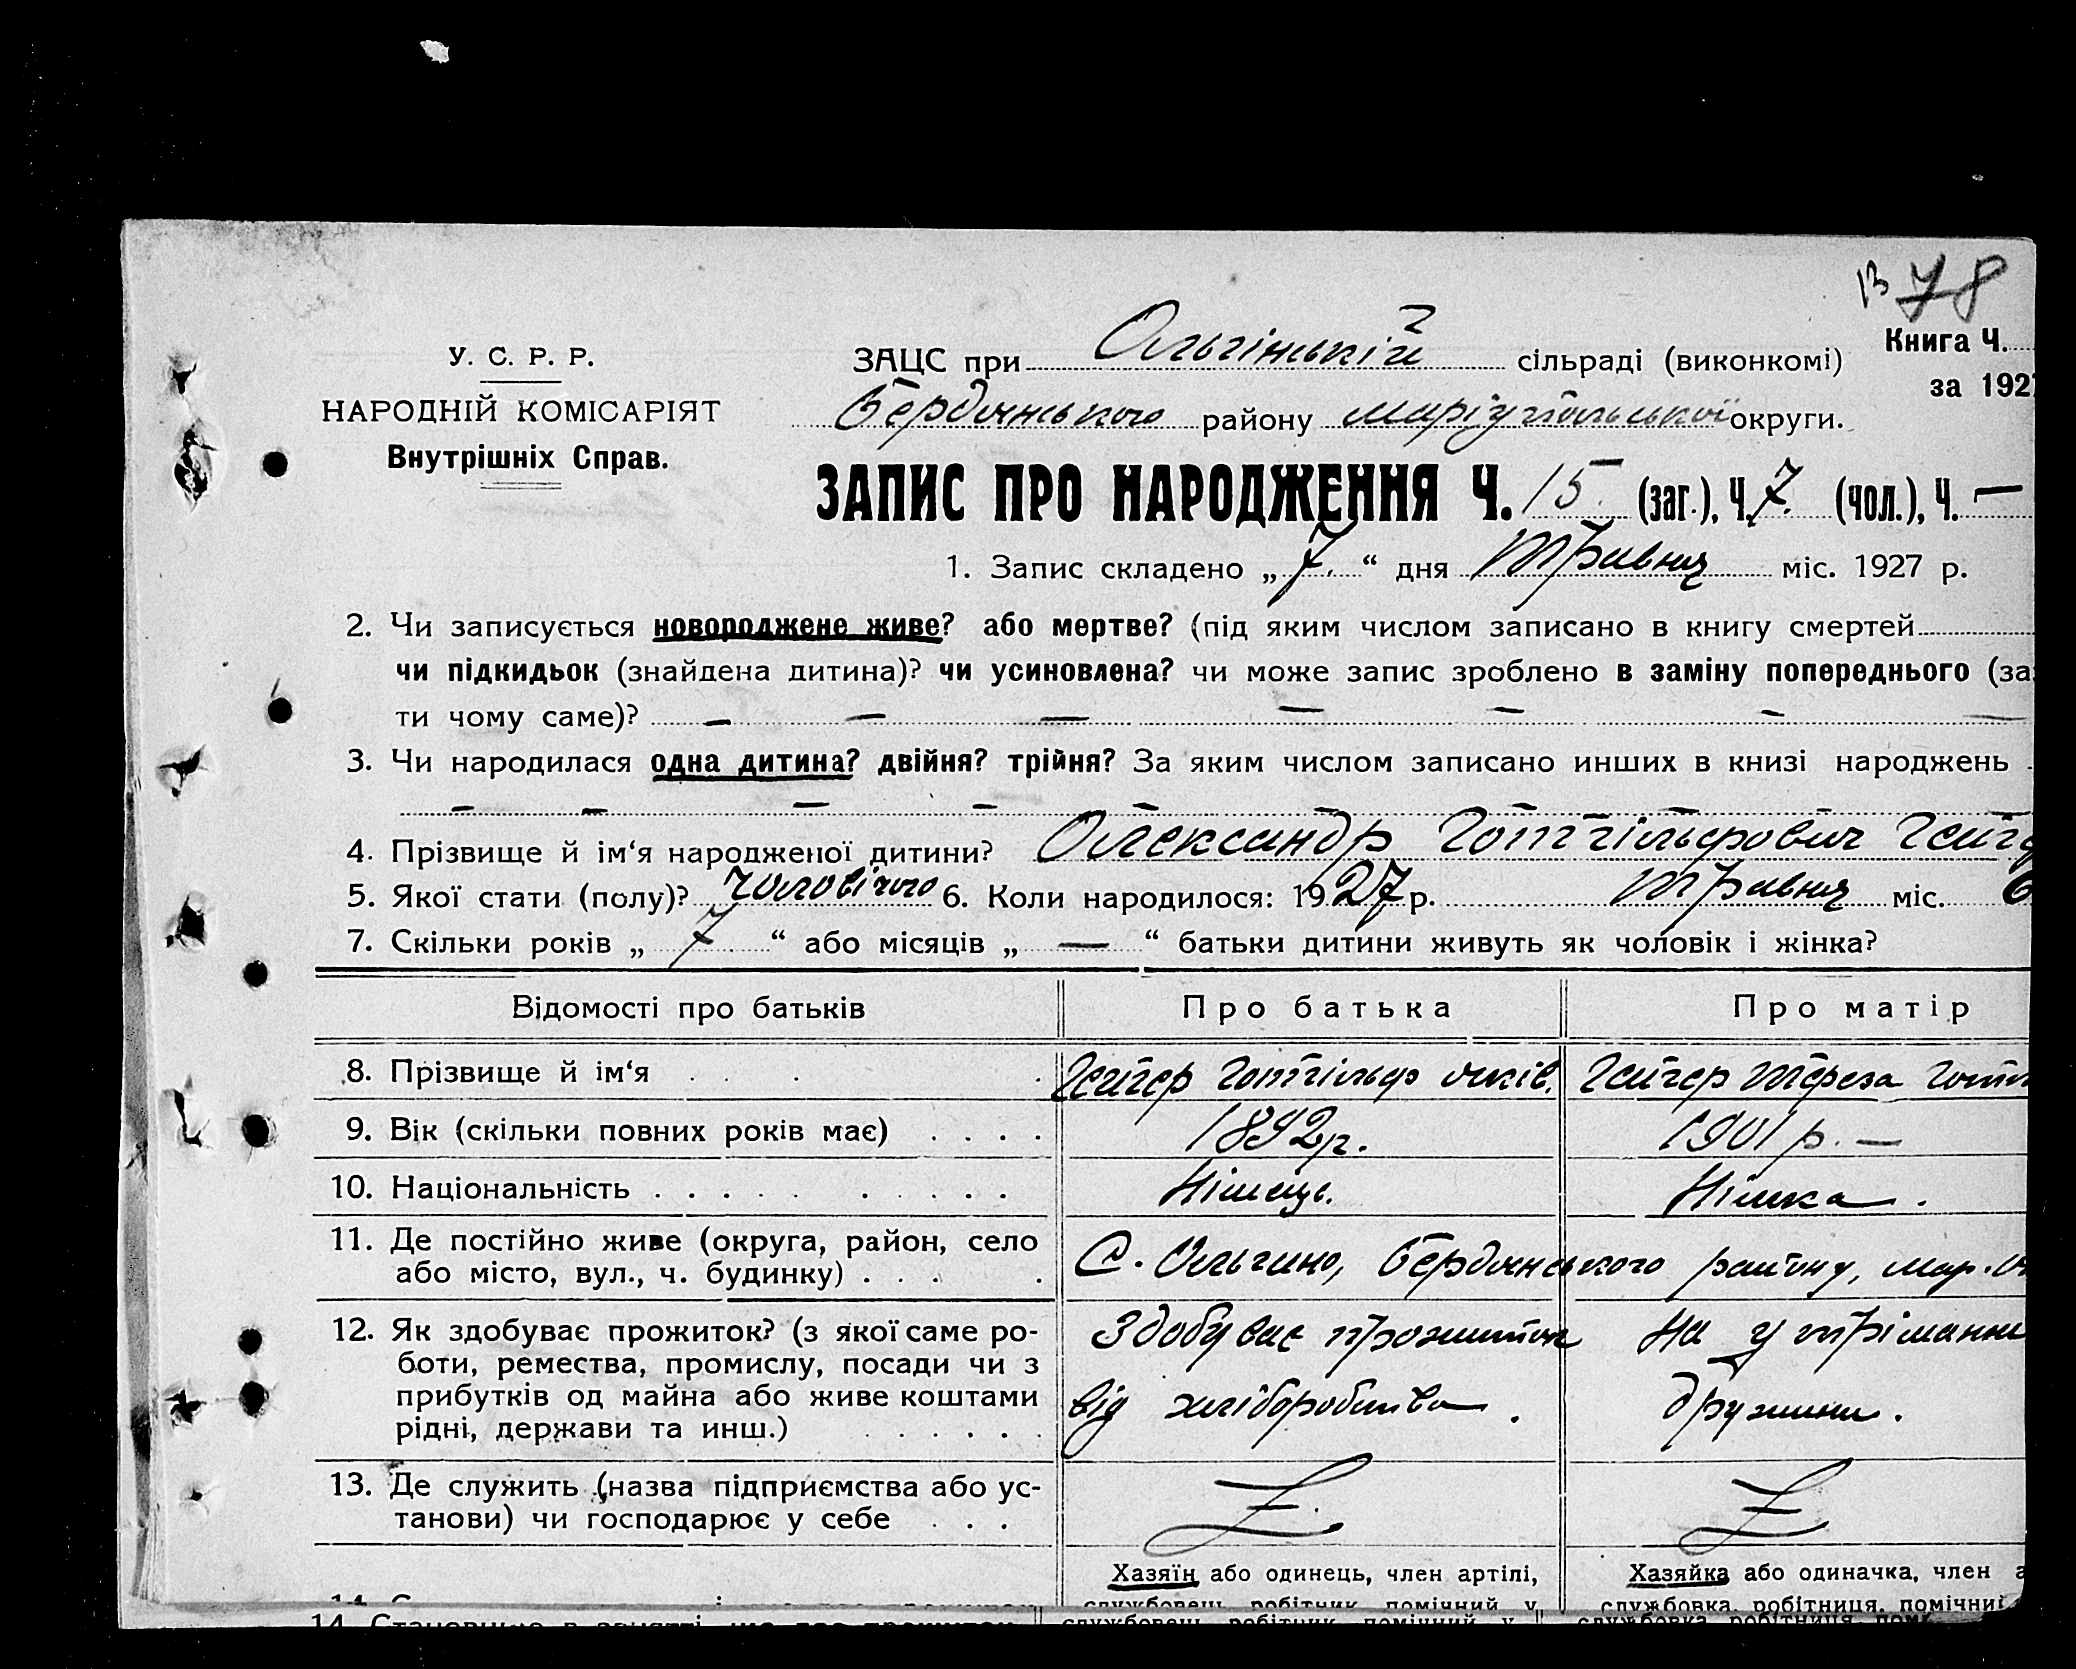 78
У. С. Р. Р.
НАРОДНІЙ КОМІСАРІЯТ
Внутрішніх Справ.
ЗАЦС при Ольгінській сільраді (виконкомі)
Книга Ч.
за 1927
Бердянського району Маріупольської округи.
ЗАПИС ПРО НАРОДЖЕННЯ Ч. 15 (заг.), Ч. 7 (чол.), Ч. —
1. Запис складено „ 7 “ дня Травня міс. 1927 р.
2. Чи записується новороджене живе? або мертве? (під яким числом записано в книгу смертей
чи підкидьок (знайдена дитина)? чи усиновлена? чи може запис зроблено в заміну попереднього (за
ти чому саме)? — — — — — — —
3. Чи народилася одна дитина? двійня? трійня? За яким числом записано инших в книзі народжень
— — — — —
4. Прізвище й ім‘я народженої дитини? Олександр Готтгільфович Гейг
5. Якої стати (полу)? Чоловічого 6. Коли народилося: 1927 р. Травня міс. 6
7. Скільки років „ 7 “ або місяців „ — “ батьки дитини живуть як чоловік і жінка?
Відомості про батьків Про батька Про матір
8. Прізвище й ім‘я . . . Гейгер Готтгільф Гейгер Тереза Готт
9. Вік (скільки повних років має) . . . . 1892 р. 1901 р. —
10. Національність . . . . . . . . . Німець. Німка.
11. Де постійно живе (округа, район, село
або місто, вул., ч. будинку) . . . .
С. Ольгино, Бердянського району, Мар. о
12. Як здобуває прожиток? (з якої саме ро-
боти, ремества, промислу, посади чи з
прибутків од майна або живе коштами
рідні, держави та инш.) . . . . . .
Здобуває прожиток
від хліборобства.
На утріманні
дружини.
13. Де служить (назва підприємства або ус-
танови) чи господарює у себе . . .
Хазяїн або одинець, член артілі,
службовець, робітник, помічний у
Хазяйка або одиначка, член а
службовка, робітниця, помічниц
14. Становище в занятті, що дає прожиток
службовець, робітник, помічний у
службовка, робітниця, пом